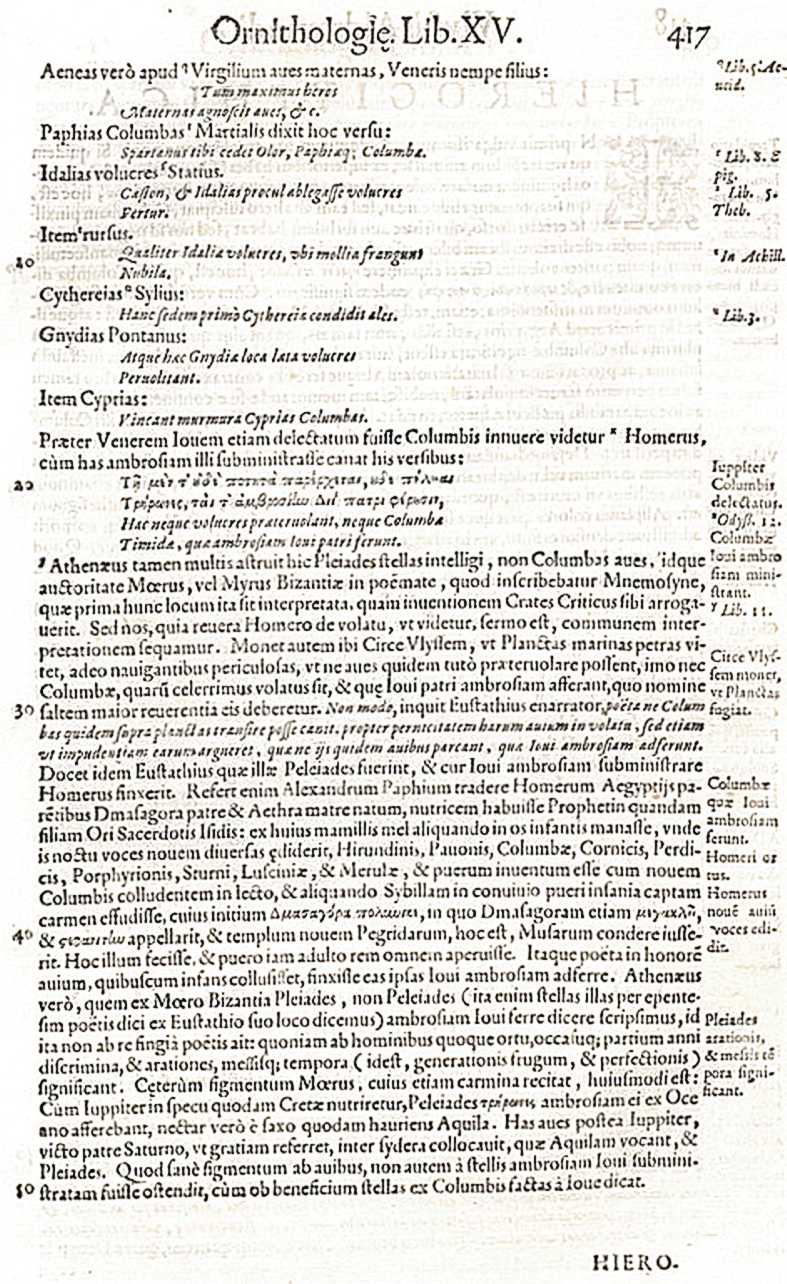 Ornithologię. Lib. XV.
417
Aeneas verò apud q Virgilium aues maternas, Veneris nempe filius:
Tum maximus heres
Maternas agnoscit aues, & c.
Paphias Columbas r Martialis dixit hoc versu:
Spartanus tibi cedet Olor, Paphiæq; Columbæ.
Idalias volucres s Statius.
& Idalias procul ablegasse volucres
Fertur.
Item t rursus.
Qualiter Idaliæ volucres, vbi mollia frangunt
10
Nubila.
Cythereias u Sylius:
Hanc sedem primò Cythereia condidit ales.
Gnydias Pontanus:
Atque hæc Gnydiæ loca læta volucres
Peruolitant.
Item Cyprias:
Vincant murmura Cyprias Columbas.
Præter Venerem Iouem etiam delectatum fuisse Columbis innuere videtur x Homerus,
cùm has ambrosiam illi subministrasse canat his versibus:
20
Τρήρωνες, ταί τ' ἀμβροσίην Διὶ πατρὶ φέρουσιν,
Hac neque volucres præteruolant, neque Columbæ
Timidæ, quæ ambrosiam Ioui patri ferunt.
y Athenæus tamen multis astruit hic Pleiades stellas intelligi, non Columbas aues, idque
auctoritate Mœrus, vel Myrus Bizantiæ in poëmate, quod inscribebatur Mnemosyne,
quæ prima hunc locum ita sit interpretata, quam inuentionem Crates Criticus sibi arroga-
uerit. Sed nos, quia reuera Homero de volatu, vt videtur, sermo est, communem inter-
pretationem sequamur. Monet autem ibi Circe Vlyssem, vt Planctas marinas petras vi-
tet, adeo nauigantibus periculosas, vt ne aues quidem tutò præteruolare possent, imo nec
Columbæ, quarū celerrimus volatus sit, & quę Ioui patri ambrosiam afferant, quo nomine
30 saltem maior reuerentia eis deberetur. Non modo, inquit Eustathius enarrator, poëta ne Colum
bas quidem supra planctas transire posse canit, propter pernicitatem harum auium in volatu, sed etiam
vt impudentiam earum argueret, quæ ne ijs quidem auibus parcant, quæ Ioui ambrosiam adferunt.
Docet idem Eustathius quæ illæ Peleiades fuerint, & cur Ioui ambrosiam subministrare
Homerus finxerit. Refert enim Alexandrum Paphium tradere Homerum Aegyptijs pa-
rētibus Dmasagora patre & Aethra matre natum, nutricem habuisse Prophetin quandam
filiam Ori Sacerdotis Isidis: ex huius mamillis mel aliquando in os infantis manasse, vnde
is noctu voces nouem diuersas ędiderit, Hirundinis, Pauonis, Columbæ, Cornicis, Perdi-
cis, Porphyrionis, Sturni, Lusciniæ, & Merulæ, & puerum inuentum esse cum nouem
Columbis colludentem in lecto, & aliquando Sybillam in conuiuio pueri insania captam
carmen effudisse, cuius initium Δμασαγόρα πολύνικε, in quo Dmasagoram etiam μεγακλῆ,
40 & appellarit, & templum nouem Pegridarum, hoc est, Musarum condere iusse-
rit. Hoc illum fecisse, & puero iam adulto rem omnem aperuisse. Itaque poëta in honorē
auium, quibuscum infans collusisset, finxisse eas ipsas Ioui ambrosiam adferre. Athenæus
verò, quem ex Mœro Bizantia Pleiades, non Peleiades (ita enim stellas illas per epente-
sim poëtis dici ex Eustathio suo loco dicemus) ambrosiam Ioui ferre dicere scripsimus, id
ita non ab re fingi à poëtis ait: quoniam ab hominibus quoque ortu, occasuq; partium anni
discrimina, & arationes, messisq; tempora (idest, generationis frugum, & perfectionis)
significant. Cęterùm figmentum Mœrus, cuius etiam carmina recitat, huiusmodi est:
Cùm Iuppiter in specu quodam Cretæ nutriretur, Peleiades τρήρωνες ambrosiam ei ex Oce
ano afferebant, nectar verò è saxo quodam hauriens Aquila. Has aues postea Iuppiter,
victo patre Saturno, vt gratiam referret, inter sydera collocauit, quæ Aquilam vocant, &
Pleiades. Quod sanè figmentum ab auibus, non autem à stellis ambrosiam Ioui submini-
50 stratam fuisse ostendit, cùm ob beneficium stellas ex Columbis factas à Ioue dicat.
HIERO.
q Lib. 5. Ae-
neid.
r Lib. 8. E
pig.
s Lib. 5.
Theb.
t In Achill.
u Lib. 3.
Iuppiter
Columbis
delectatus.
x Odyss. 12.
Columbæ
Ioui ambro
siam mini-
strant.
y Lib. 11.
Circe Vlys-
sem monet,
vt Planctas
fugiat.
Columbæ
quæ Ioui
ambrosiam
ferunt.
Homeri or
tus.
Homerus
nouē auiū
voces edi-
dit.
Pleiades
arationis,
& messis tē
pora signi-
ficant.